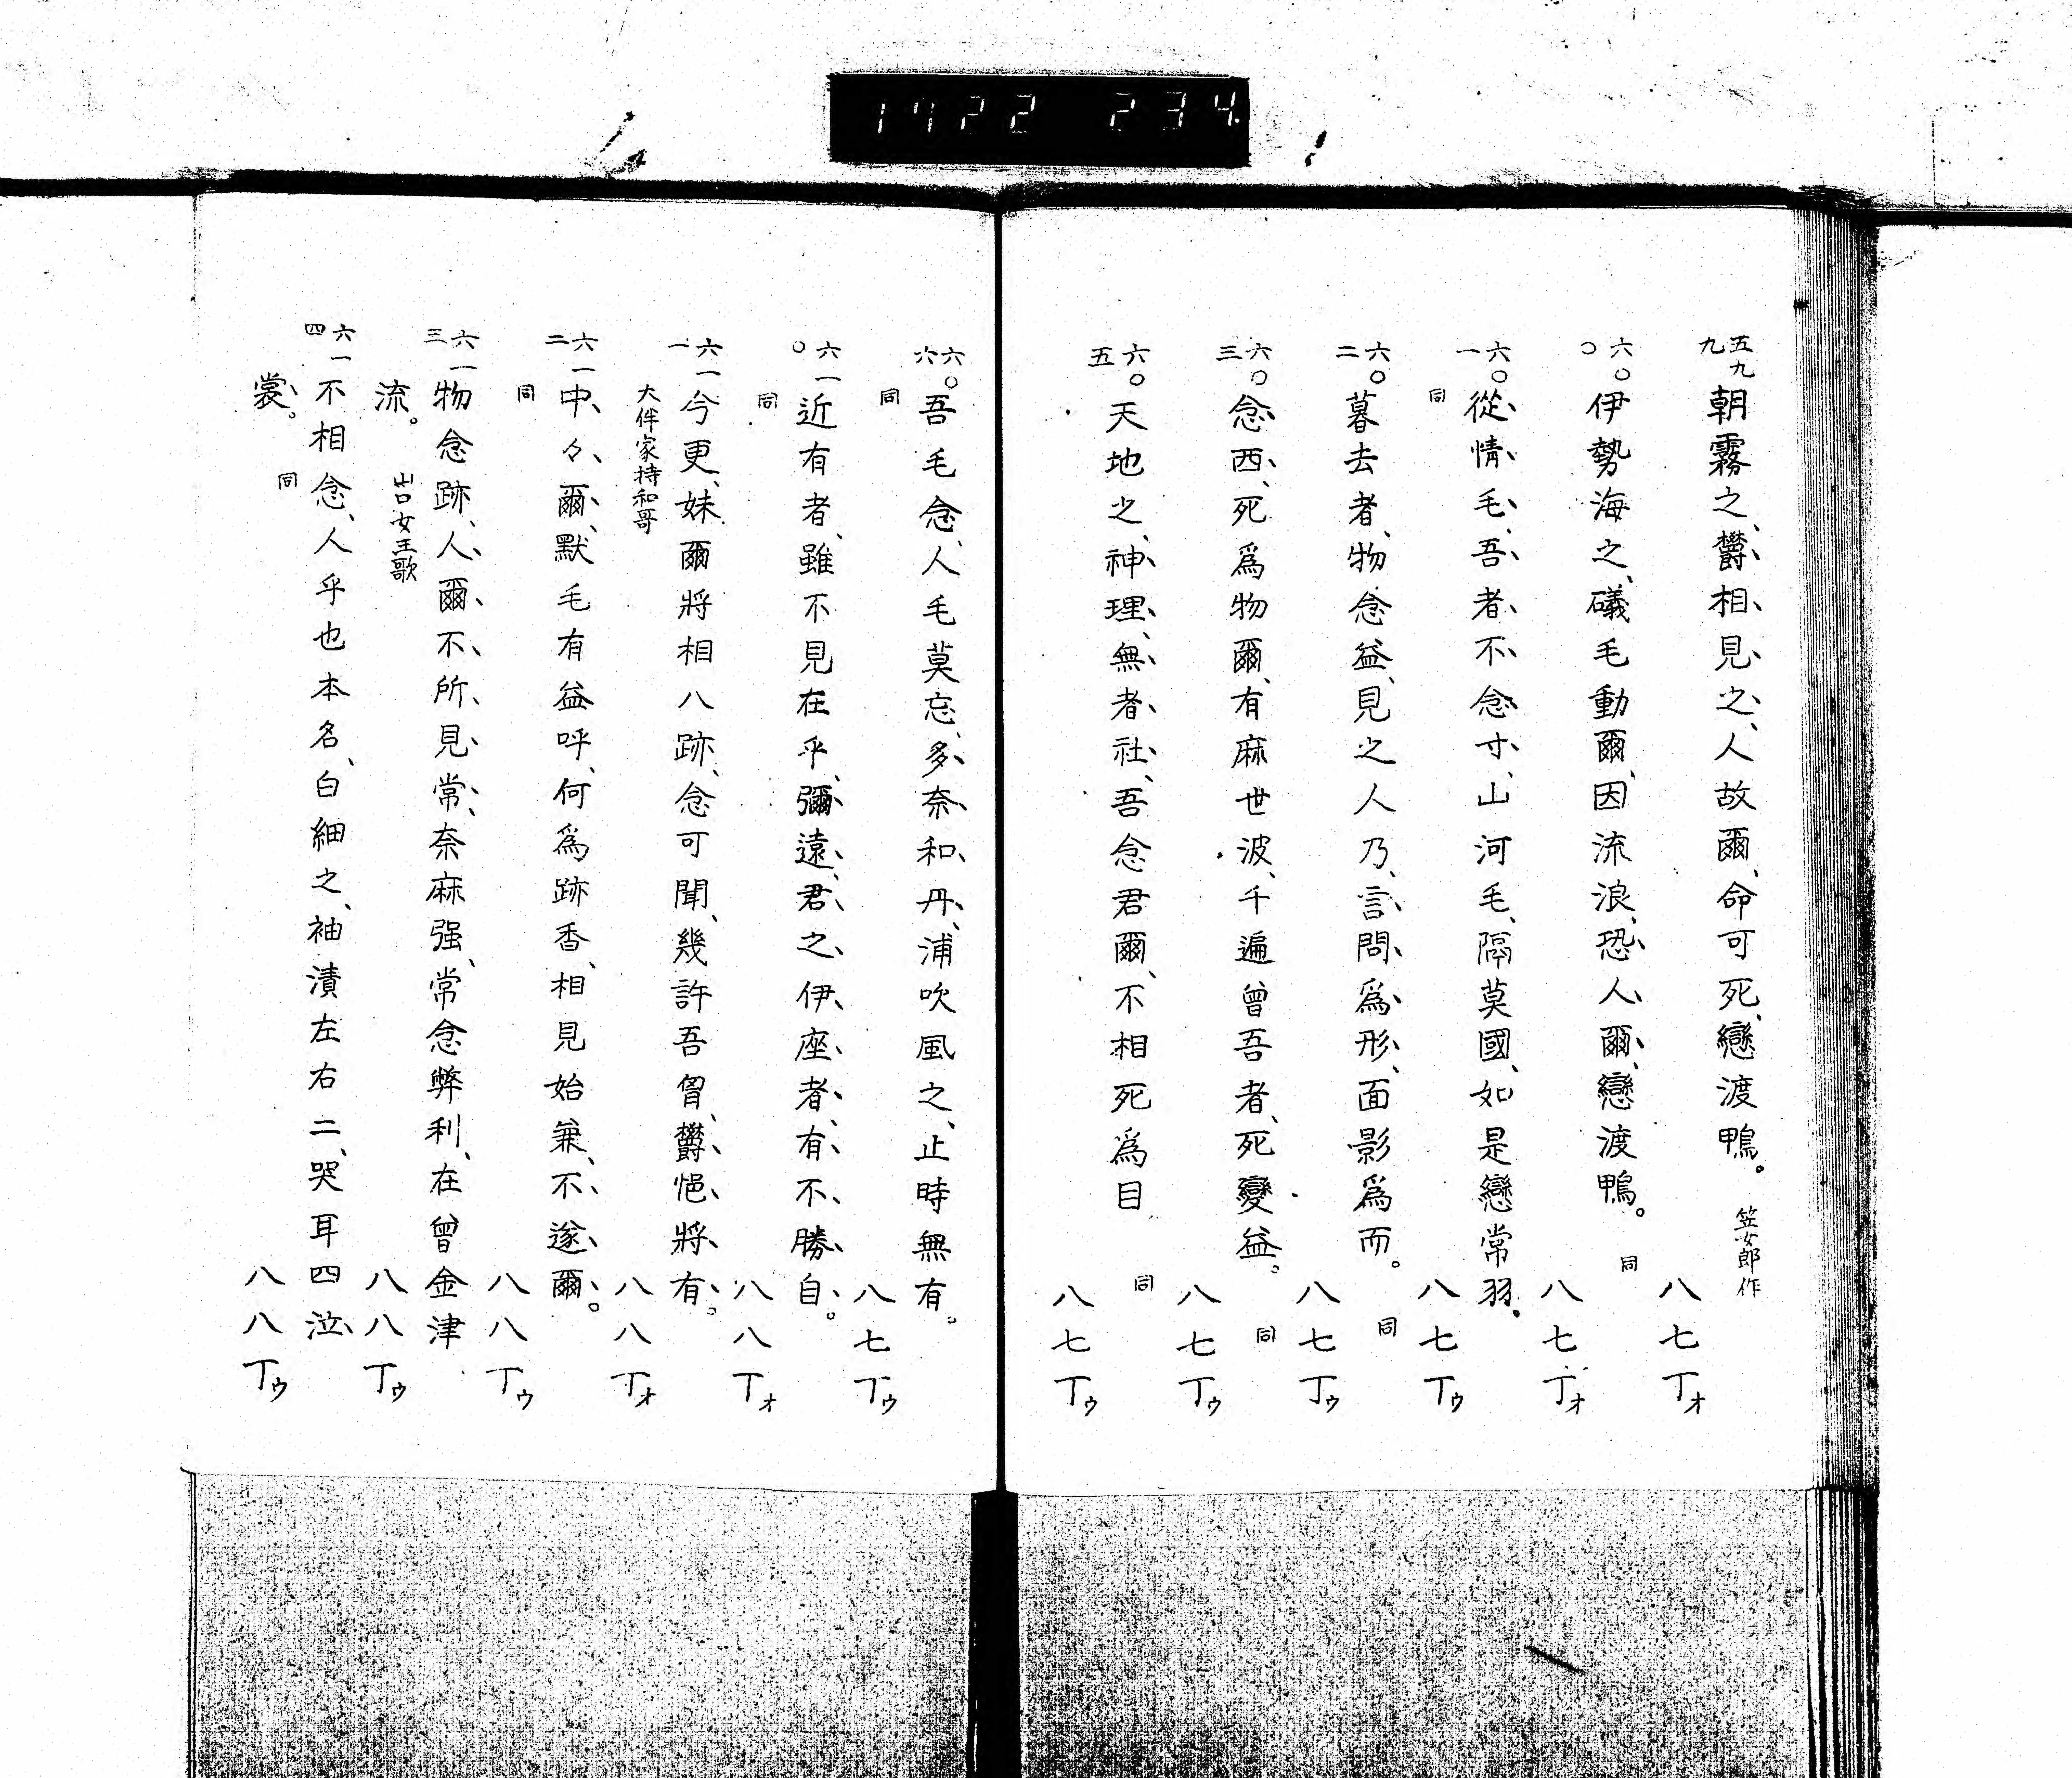 1722 234
五九九 朝霧之、欝、相、見、之、人故爾、命可死、戀渡鴨。 笠女郎作 八七丁ォ
六〇〇 伊勢海之、礒毛動爾、因流浪、恐、人、爾、戀渡鴨。 同 八七丁ォ
六〇一 從、情、毛、吾、者、不念寸、山河毛、隔莫國、如是戀常羽。 同 八七丁ゥ
六〇二 暮去者、物念益、見之人乃、言、問、爲、形、面影爲而。 同 八七丁ゥ
六〇三 念西、死爲物爾、有麻世波、千遍曾吾者、死變益。 同 八七丁ゥ
六〇五 天地之、神、理、無、者、社、吾念君爾、不相死爲目 同 八七丁ゥ
六〇六 吾毛念、人毛莫忘、多、奈、和、丹、浦吹風之、止時無有。 同 八七丁ゥ
六一〇 近有者、雖不見在乎、彌遠、君、之、伊、座、者、有、不、勝、自。 同 八八丁ォ
六一一 今更、妹爾將相八跡、念可聞、幾許吾胷、欝、悒、將、有。 大伴家持和哥 八八丁ォ
六一二 中、々、爾、默毛有益呼、何爲跡香、相見始兼、不、遂、爾。 同 八八丁ゥ
六一三 物念跡、人、爾、不、所、見、常、奈麻强、常念弊利、在曾金津
流。 山口女王歌 八八丁ゥ
六一四 不相念、人乎也本名、白細之、袖漬左右二、哭耳四泣、
裳。 同 八八丁ゥ